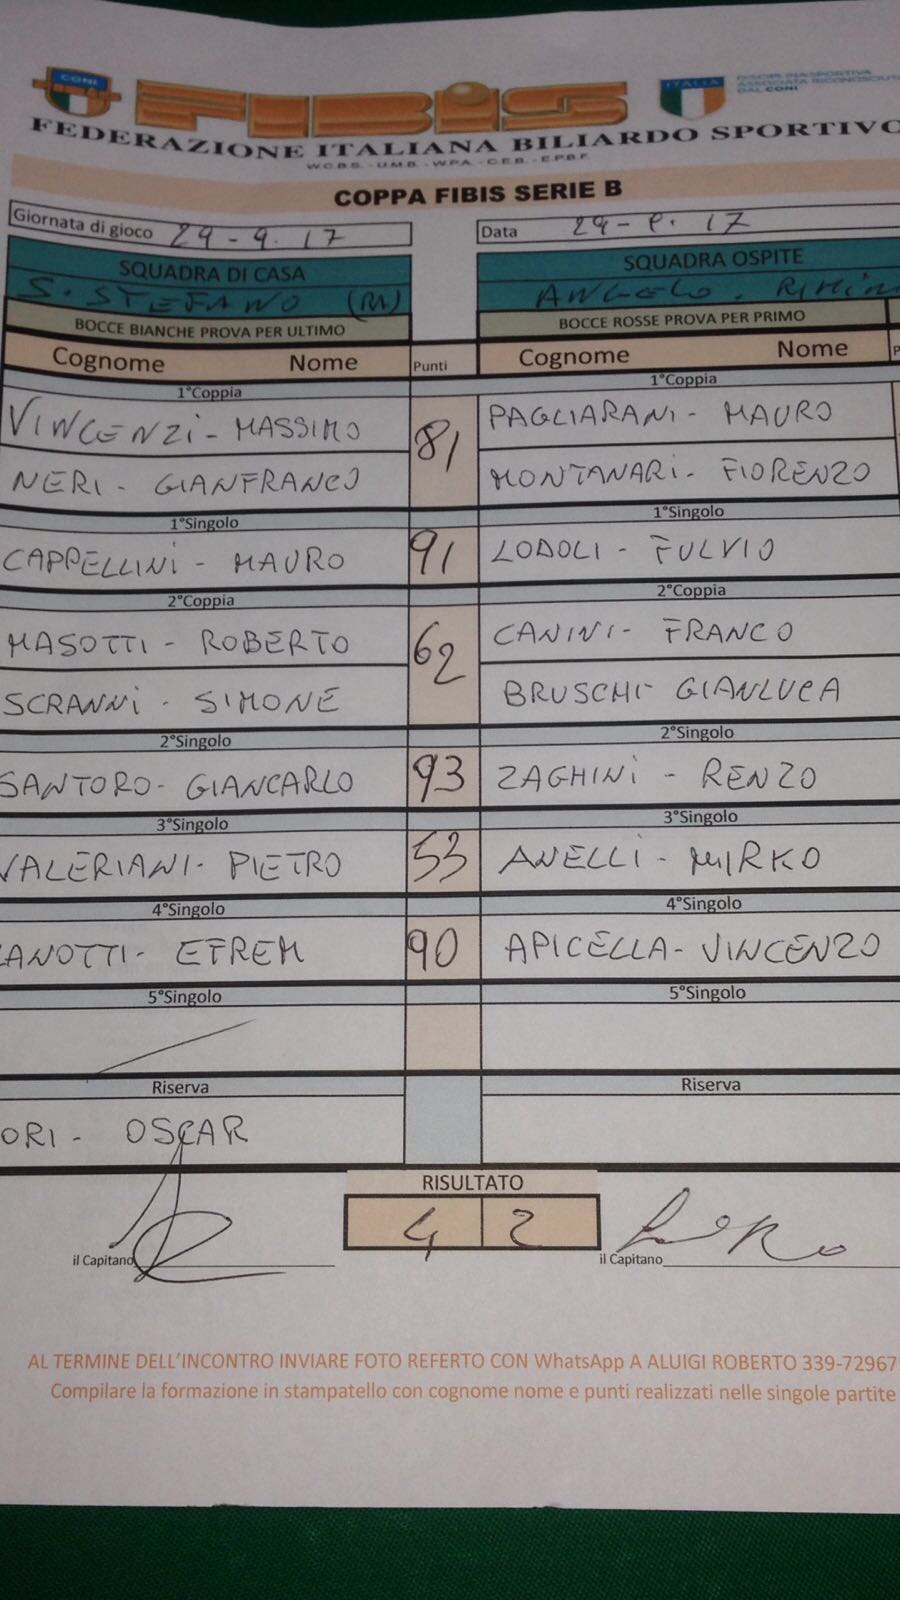 CONI
FIBIS
ITALIA
DISCIPLINA SPORTIVA
ASSOCIATA RICONOSCIUTA
DAL CONI
FEDERAZIONE ITALIANA BILIARDO SPORTIVO
W.C.B.S. - U.M.B. - W.P.A. - C.E.B. - E.P.B.F.
COPPA FIBIS SERIE B
Giornata di gioco 29-9.17 Data 29-9.17
SQUADRA DI CASA SQUADRA OSPITE
S. STEFANO (RA) ANGELO. RIMIN
BOCCE BIANCHE PROVA PER ULTIMO BOCCE ROSSE PROVA PER PRIMO
Cognome Nome Punti Cognome Nome P
1°Coppia 1°Coppia
VINCENZI - MASSIMO 81 PAGLIARANI - MAURO
NERI - GIANFRANCO MONTANARI - FIORENZO
1°Singolo 1°Singolo
CAPPELLINI - MAURO 91 LODOLI - FULVIO
2°Coppia 2°Coppia
MASOTTI - ROBERTO 62 CANINI - FRANCO
SCRANNI - SIMONE BRUSCHI - GIANLUCA
2°Singolo 2°Singolo
SANTORO - GIANCARLO 93 ZAGHINI - RENZO
3°Singolo 3°Singolo
VALERIANI - PIETRO 53 ANELLI - MIRKO
4°Singolo 4°Singolo
ZANOTTI - EFREM 90 APICELLA - VINCENZO
5°Singolo 5°Singolo
Riserva Riserva
ORI - OSCAR
RISULTATO
4 2
il Capitano il Capitano
AL TERMINE DELL'INCONTRO INVIARE FOTO REFERTO CON WhatsApp A ALUIGI ROBERTO 339-72967
Compilare la formazione in stampatello con cognome nome e punti realizzati nelle singole partite